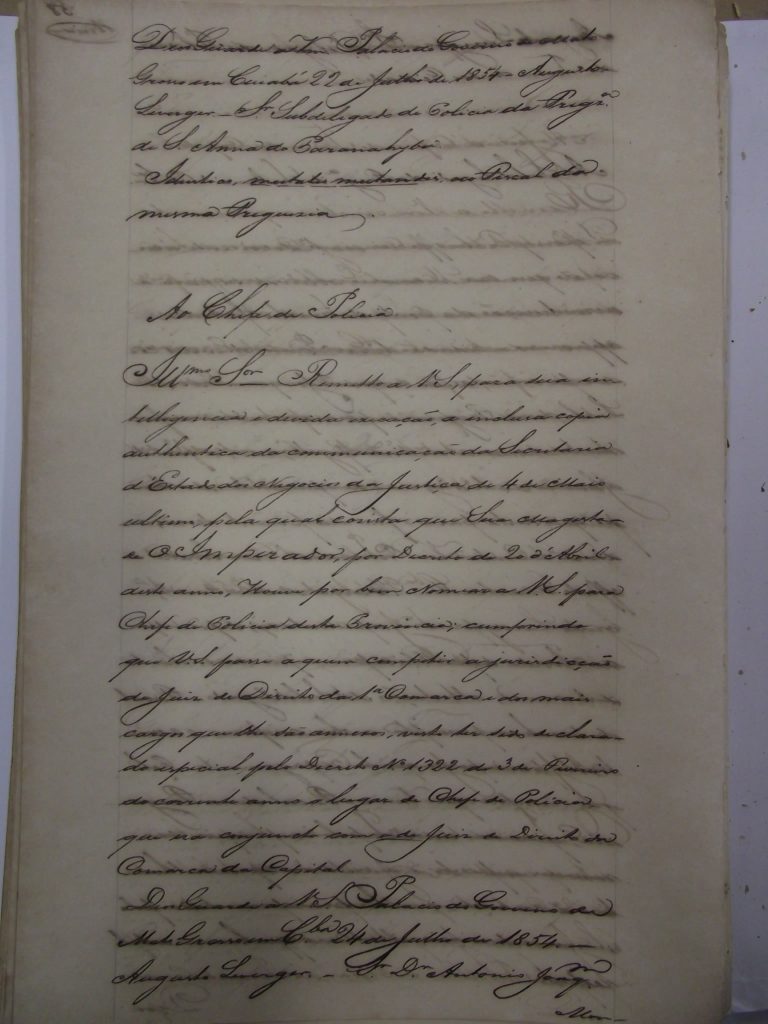 Deos Guarde a Vm. Palacio do Governo de Mato
Grosso em Cuiabá 22 de Julho de 1854 - Augusto
Leverger. - Sr. Subdelegado de Policia da Freg.ª
de S. Anna do Paranahyba.
Identico, mutatis mutandis, ao Fiscal da
mesma Freguesia.
Ao Chefe de Policia
Ill.mo Sor Remetto a V.S., para sua in
telligencia e devida execução, a inclusa copia
authentica da communicação da Secretaria
d'Estado dos Negocios da Justiça de 4 de Maio
ultimo, pela qual consta que Sua Magesta
de O Imperador, por Decreto de 20 d'Abril
deste anno, Houve por bem Nomear a V.S. para
Chefe de Policia desta Provincia; cumprindo
que V.S. passe a quem competir a jurisdicção
de Juiz de Direito da 1ª Comarca e dos mais
cargos que lhe são annexos, visto ter sido declara
do especial pelo Decreto Nº 1322 de 3 de Fevereiro
do corrente anno o lugar de Chefe de Policia
que era conjuncto com o de Juiz de Direito da
Comarca da Capital.
Deos Guarde a V.S. Palacio do Governo de
Mato Grosso em C.bá 24 de Julho de 1854. -
Augusto Leverger. - Sr. Dr. Antonio Joaq.m